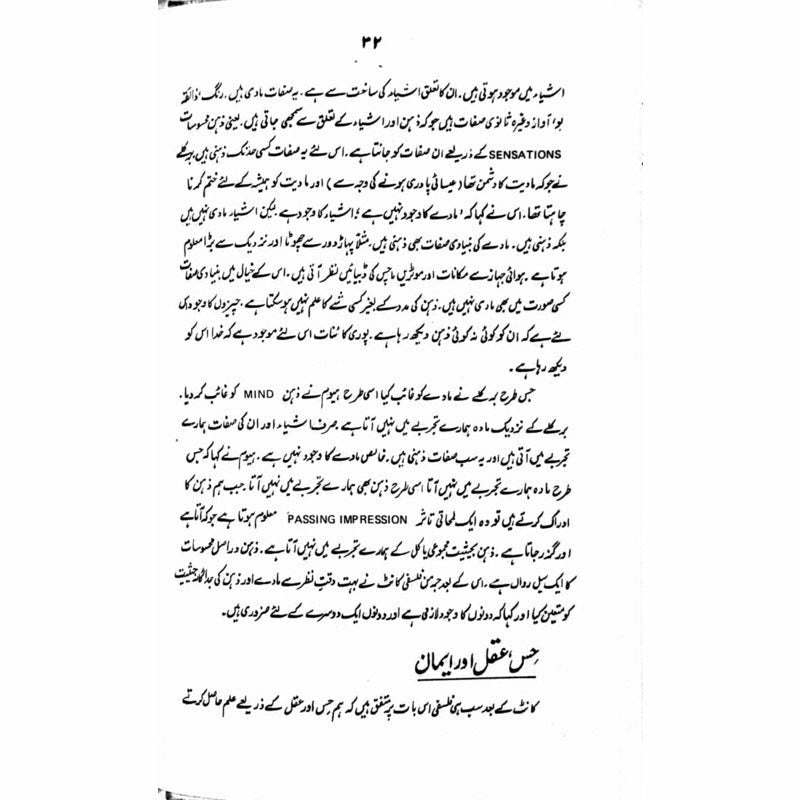 ۳۲
اشیاء میں موجود ہوتی ہیں۔ ان کا تعلق اشیاء کی ساخت سے ہے۔ یہ صفات مادی ہیں۔ رنگ، ذائقہ
بو، آواز وغیرہ ثانوی صفات ہیں جو کہ ذہن اور اشیاء کے تعلق سے سمجھی جاتی ہیں۔ یعنی ذہن محسوسات
SENSATIONS کے ذریعے ان صفات کو جانتا ہے۔ اس لئے یہ صفات کسی حد تک ذہنی ہیں۔ برکلے
نے جو کہ مادیت کا دشمن تھا (عیسائی پادری ہونے کی وجہ سے) اور مادیت کو ہمیشہ کے لئے ختم کرنا
چاہتا تھا۔ اس نے کہا کہ، مادے کا وجود نہیں ہے، اشیاء کا وجود ہے لیکن اشیاء مادی نہیں ہیں
بلکہ ذہنی ہیں۔ مادے کی بنیادی صفات بھی ذہنی ہیں۔ مثلاً پہاڑ دور سے چھوٹا اور نزدیک سے بڑا معلوم
ہوتا ہے۔ ہوائی جہاز سے مکانات اور موٹریں ماچس کی ڈبیائیں نظر آتی ہیں۔ اس کے خیال میں بنیادی صفات
کسی صورت میں بھی مادی نہیں ہیں۔ ذہن کی مدد کے بغیر کسی شے کا علم نہیں ہو سکتا ہے۔ چیزوں کا وجود ہی
لئے ہے کہ ان کو کوئی نہ کوئی ذہن دیکھ رہا ہے۔ پوری کائنات اس لئے موجود ہے کہ خدا اس کو
دیکھ رہا ہے۔
جس طرح برکلے نے مادے کو غائب کیا اسی طرح ہیوم نے ذہن MIND کو غائب کر دیا۔
برکلے کے نزدیک مادہ ہمارے تجربے میں نہیں آتا ہے۔ صرف اشیاء اور ان کی صفات ہمارے
تجربے میں آتی ہیں اور یہ سب صفات ذہنی ہیں۔ خالص مادے کا وجود نہیں ہے۔ ہیوم نے کہا کہ جس
طرح مادہ ہمارے تجربے میں نہیں آتا اسی طرح ذہن بھی ہمارے تجربے میں نہیں آتا۔ جب ہم ذہن کا
ادراک کرتے ہیں تو وہ ایک لمحاتی تاثر PASSING IMPRESSION معلوم ہوتا ہے جو کہ آتا ہے
اور گذر جاتا ہے۔ ذہن بحیثیت مجموعی یا کل کے ہمارے تجربے میں نہیں آتا ہے۔ ذہن دراصل محسوسات
کا ایک سیل رواں ہے۔ اس کے بعد جرمن فلسفی کانٹ نے بہت دقتِ نظر سے مادے اور ذہن کی جداگانہ حیثیت
کو متعین کیا اور کہا کہ دونوں کا وجود لازمی ہے اور دونوں ایک دوسرے کے لئے ضروری ہیں۔
حِس، عقل اور ایمان
کانٹ کے بعد سب ہی فلسفی اس بات پر متفق ہیں کہ ہم حِس اور عقل کے ذریعے علم حاصل کرتے